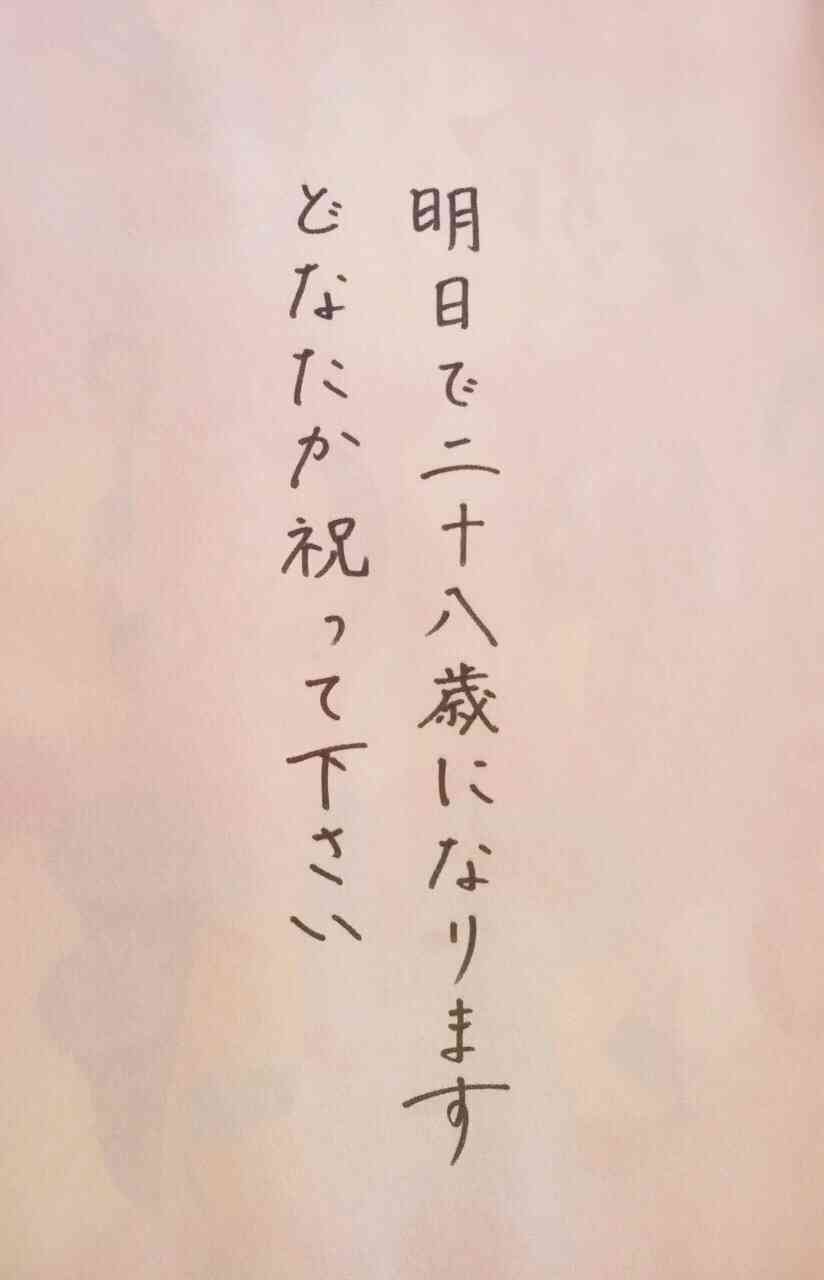 明日で二十八歳になります
どなたか祝って下さい